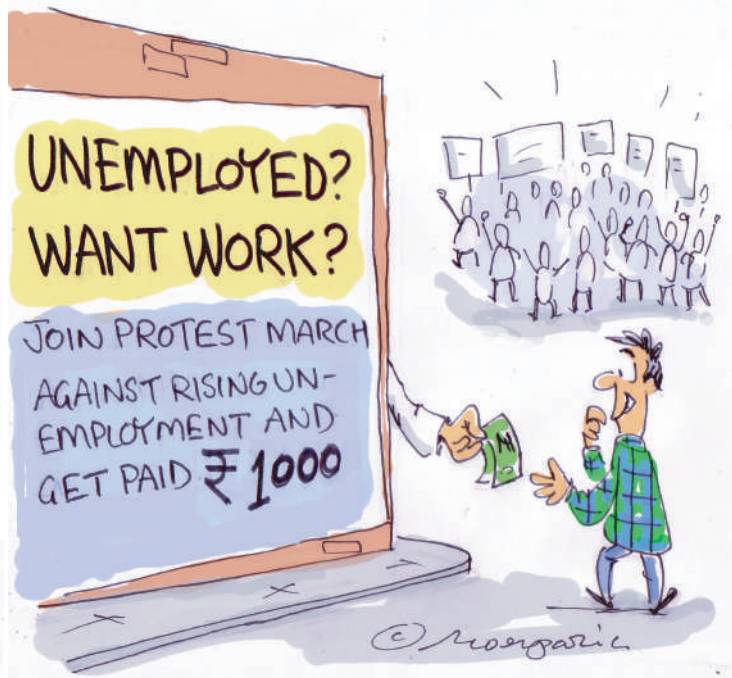 UNEMPLOYED?
WANT WORK?
JOIN PROTEST MARCH
AGAINST RISING UN-
EMPLOYMENT AND
GET PAID ₹ 1000
©